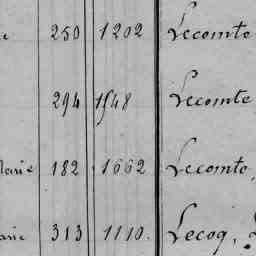 e 250 1202 Lecomte
294 1548 Lecomte
Marie 182 1662 Lecomte,
Marie 313 1110. Lecoq,